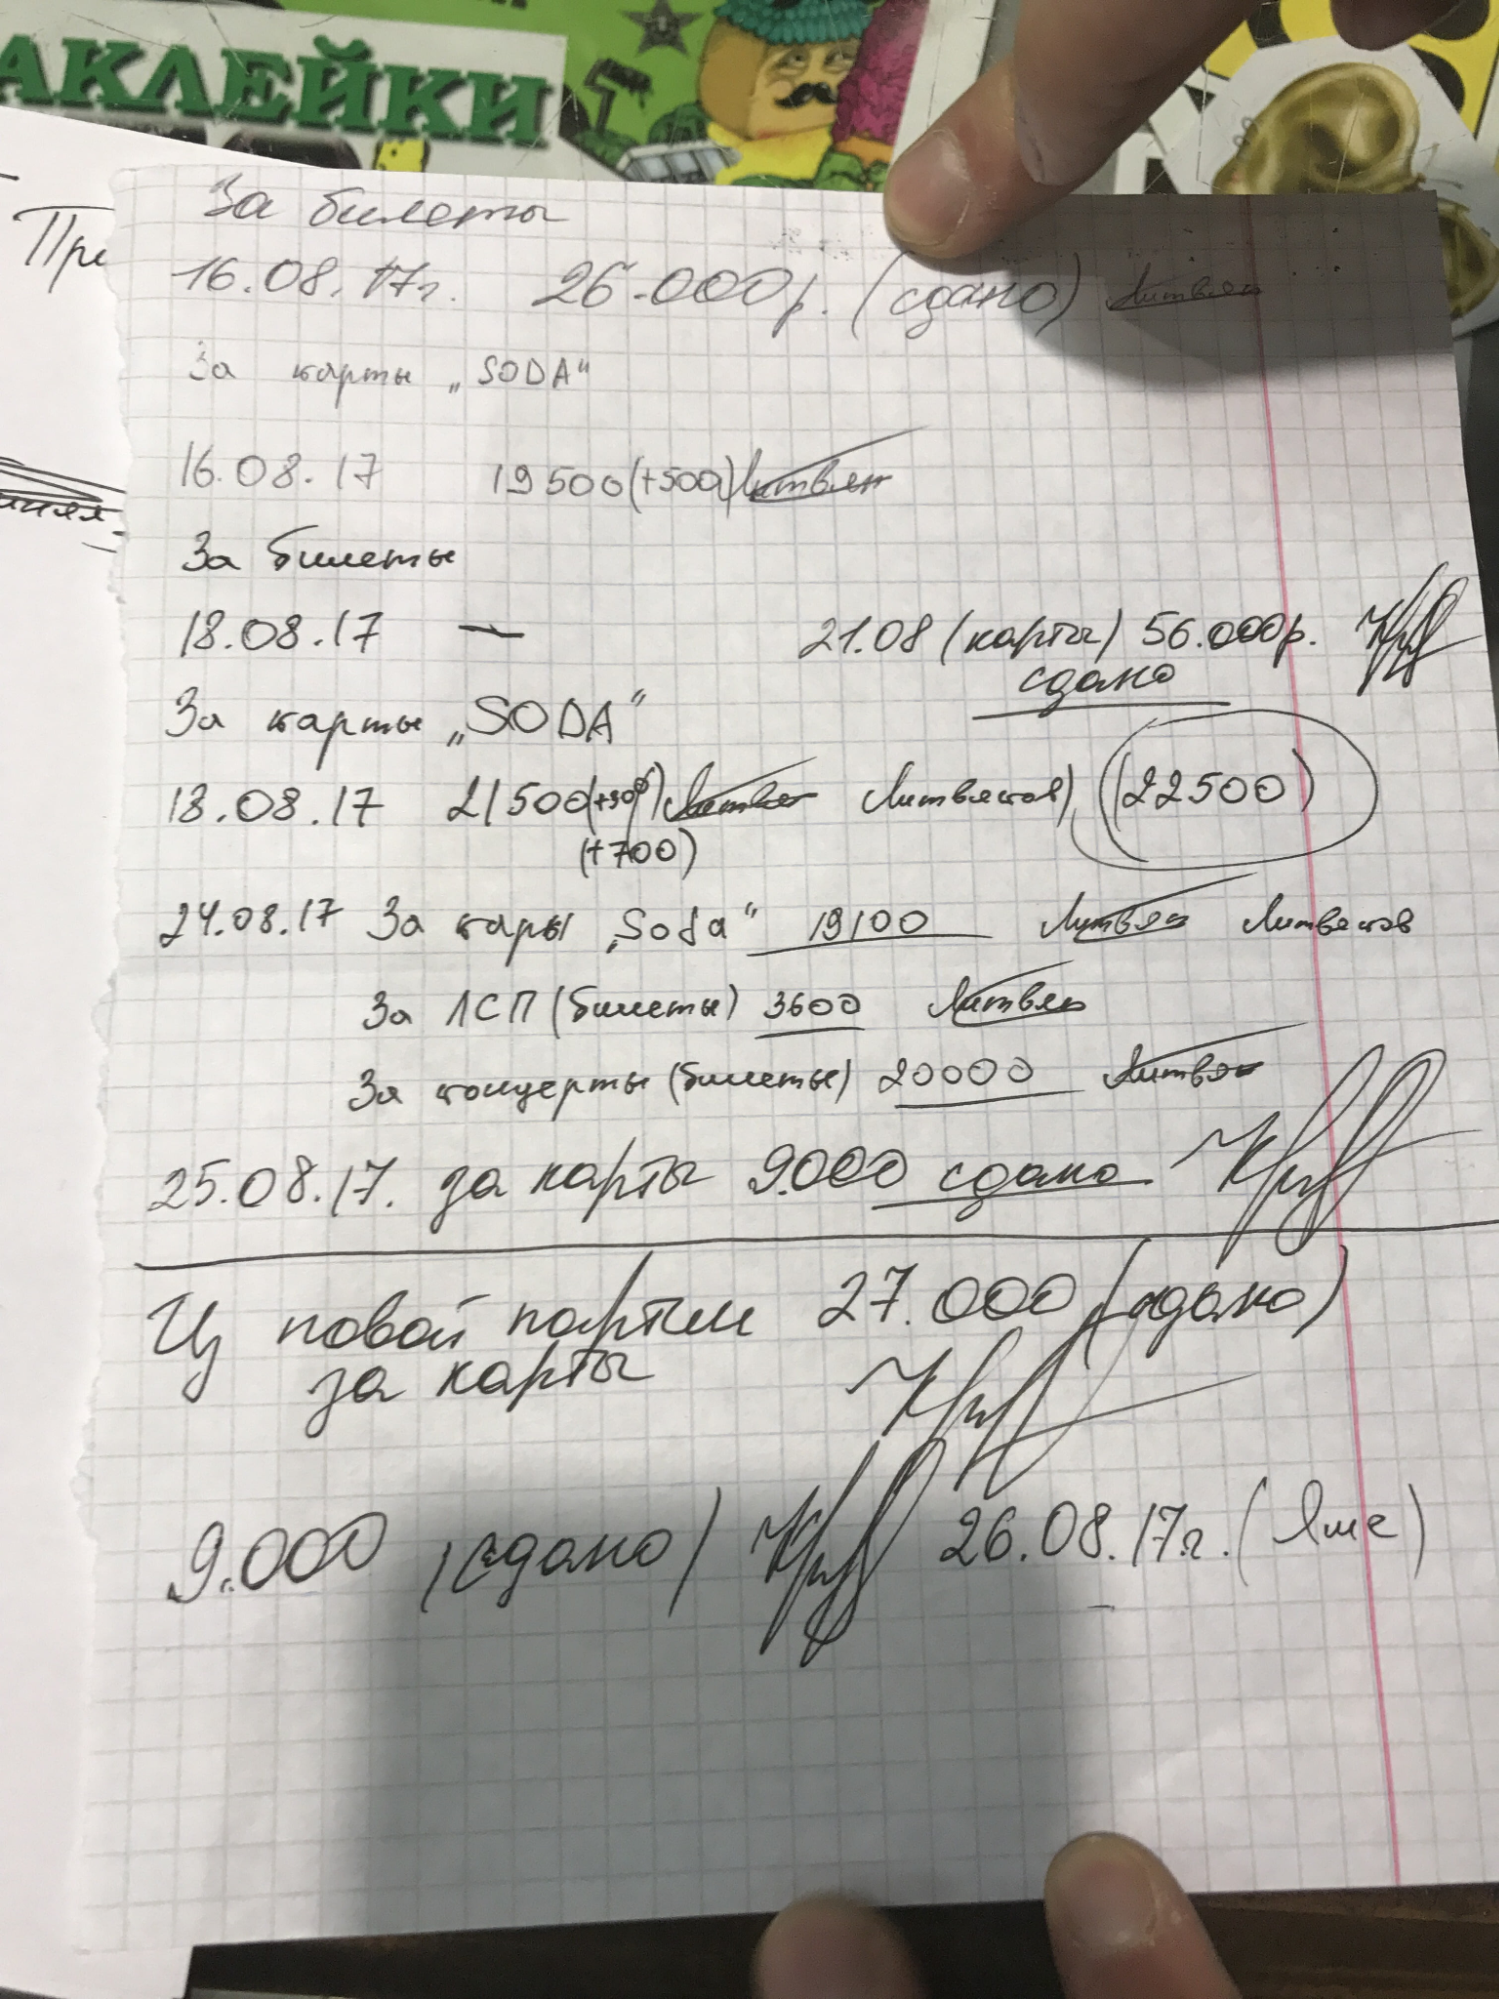 АКЛЕЙКИ
За билеты
16.08.17г. 26.000р. (сдано)
За карты „SODA“
16.08.17 19500(+500)
За билеты
18.08.17 — 21.08 (карты) 56.000р.
сдано
За карты „SODA“
18.08.17 21500(+300) (22500)
(+700)
24.08.17 За кары „Soda“ 19100
За ЛСП (билеты) 3600
За концерты (билеты) 20000
25.08.17. за карты 9.000 сдано
Из новой партии 27.000 (сдано)
за карты
9.000 (сдано) 26.08.17г. (Яше)